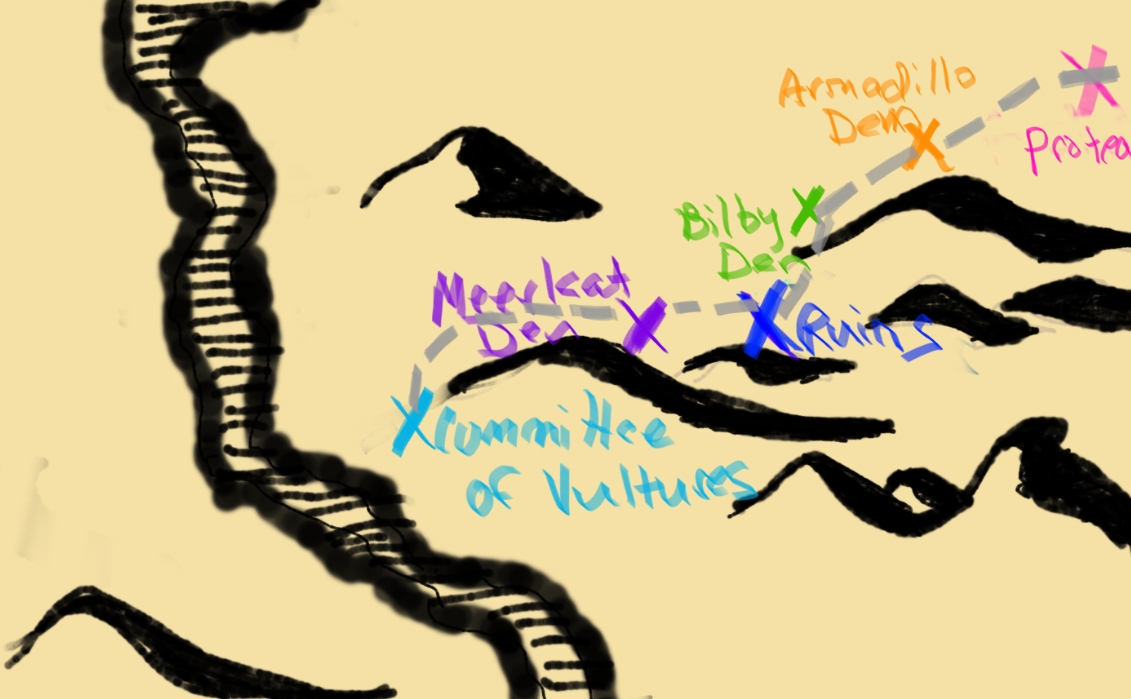 Armadillo
Den
Protea
Bilby
Den
Meerkat
Den
Ruins
Committee
of Vultures